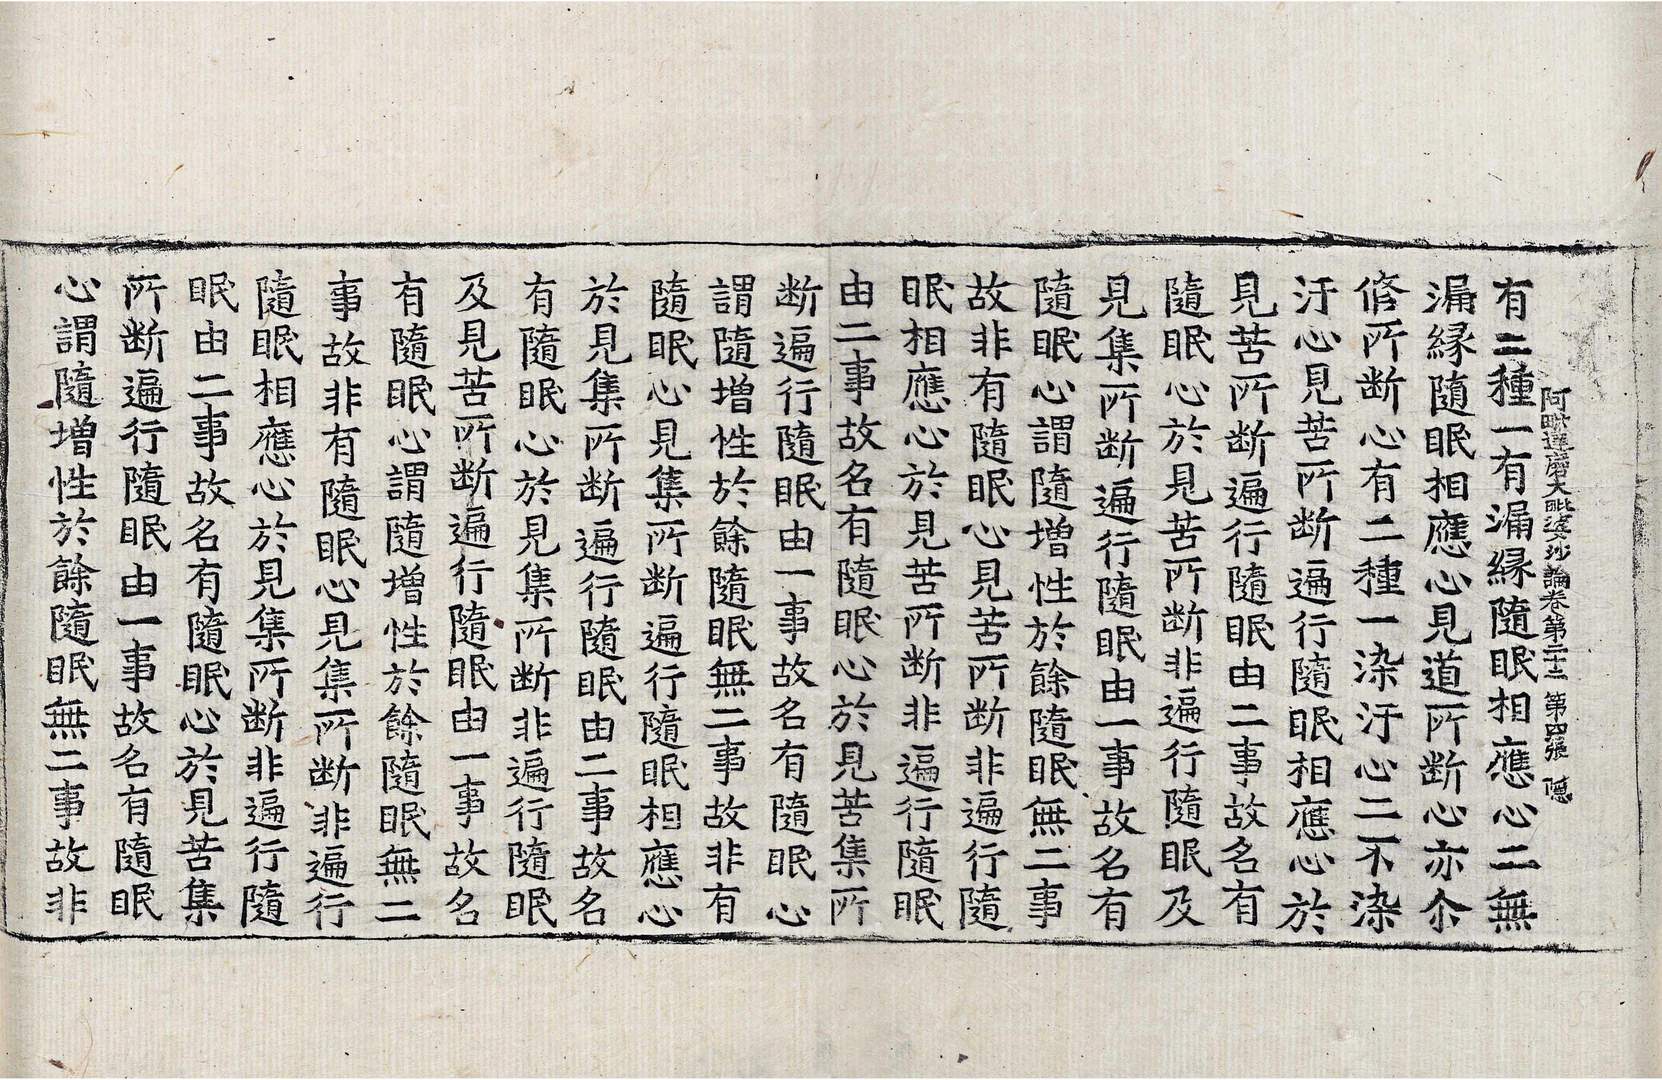 阿毗達磨大毗婆沙論卷第二十二 第四張 隱
有二種一有漏縁隨眠相應心二無
漏縁隨眠相應心見道所断心亦尒
修所断心有二種一染汙心二不染
汙心見苦所断遍行隨眠相應心於
見苦所断遍行隨眠由二事故名有
隨眠心於見苦所断非遍行隨眠及
見集所断遍行隨眠由一事故名有
隨眠心謂隨增性於餘隨眠無二事
故非有隨眠心見苦所断非遍行隨
眠相應心於見苦所断非遍行隨眠
由二事故名有隨眠心於見苦集所
断遍行隨眠由一事故名有隨眠心
謂隨增性於餘隨眠無二事故非有
隨眠心見集所断遍行隨眠相應心
於見集所断遍行隨眠由二事故名
有隨眠心於見集所断非遍行隨眠
及見苦所断遍行隨眠由一事故名
有隨眠心謂隨增性於餘隨眠無二
事故非有隨眠心見集所断非遍行
隨眠相應心於見集所断非遍行隨
眠由二事故名有隨眠心於見苦集
所断遍行隨眠由一事故名有隨眠
心謂隨增性於餘隨眠無二事故非